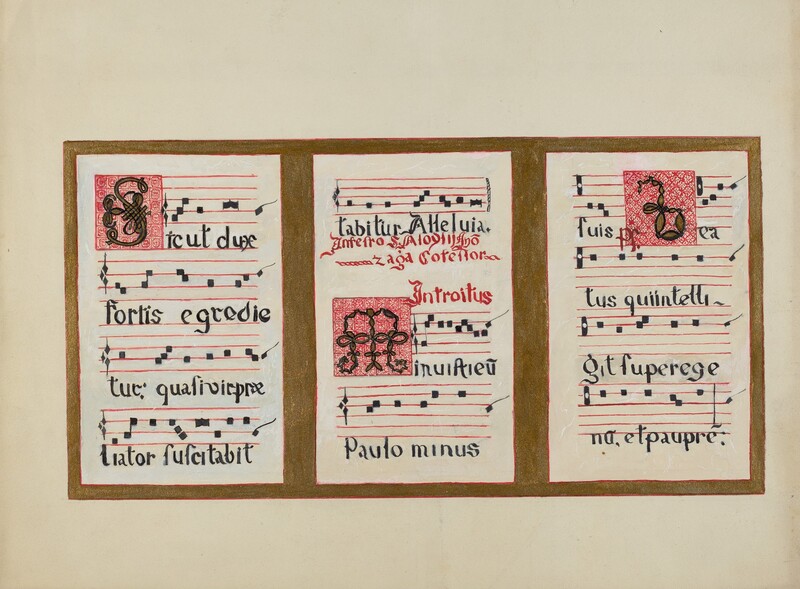 Sicut dux
fortis egredie
tur: quasi vir præ
liator suscitabit
tabitur Alleluia.
zaga Cofessor
Introitus
Minuisti eũ
Paulo minus
suis ps. Bea
tus qui intelli-
git super ege
nũ, et pauprẽ: